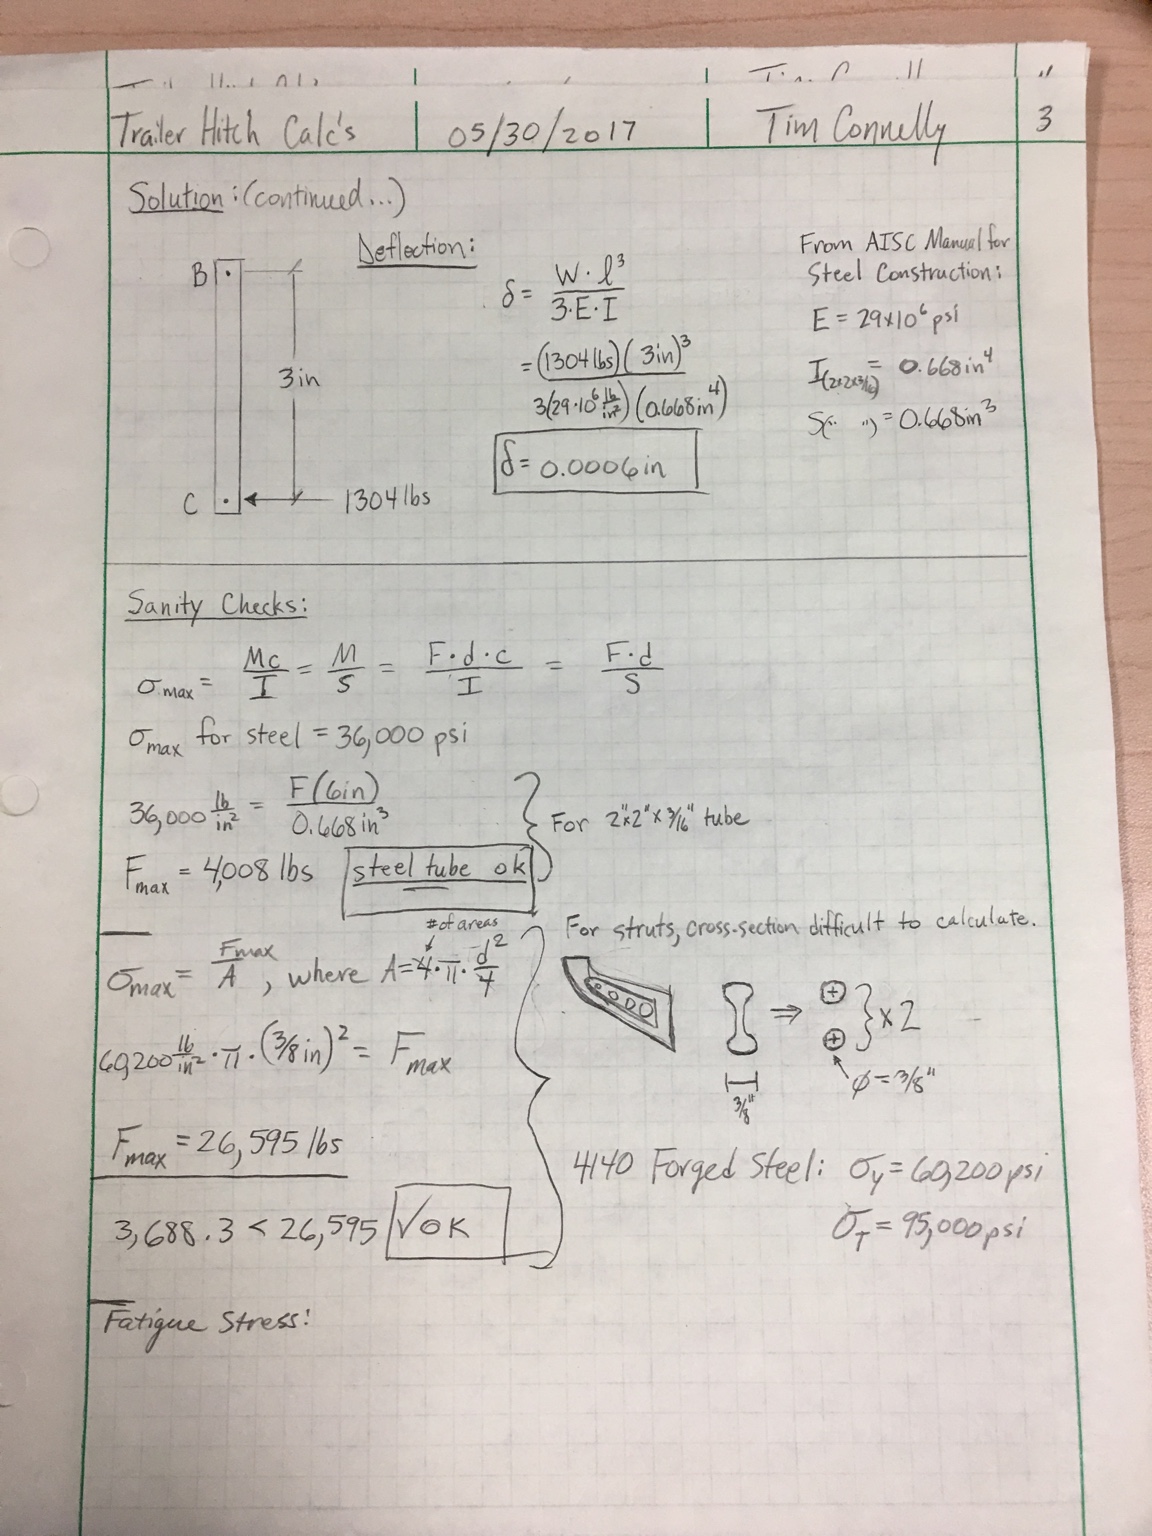 Trailer Hitch Calc's | 05/30/2017 | Tim Connelly | 3
Solution: (continued...)
Deflection:
B
3in
C
1304 lbs
δ = W·l³ / 3·E·I
= (1304 lbs)(3in)³ / 3(29·10⁶ lb/in²)(0.668in⁴)
δ = 0.0006in
From AISC Manual for
Steel Construction:
E = 29x10⁶ psi
I(2x2x3/16) = 0.668in⁴
S(" ") = 0.668in³
Sanity Checks:
σmax = Mc/I = M/S = F·d·c/I = F·d/S
σmax for steel = 36,000 psi
36,000 lb/in² = F(6in) / 0.668in³
For 2"x2"x3/16" tube
Fmax = 4,008 lbs
steel tube ok
# of areas
σmax = Fmax/A, where A=4·π·d²/4
60,200 lb/in²·π·(3/8in)² = Fmax
Fmax = 26,595 lbs
3,688.3 < 26,595 √OK
For struts, cross-section difficult to calculate.
⇒ } x2
3/8"
φ=3/8"
4140 Forged Steel: σy = 60,200 psi
σT = 95,000 psi
Fatigue Stress: